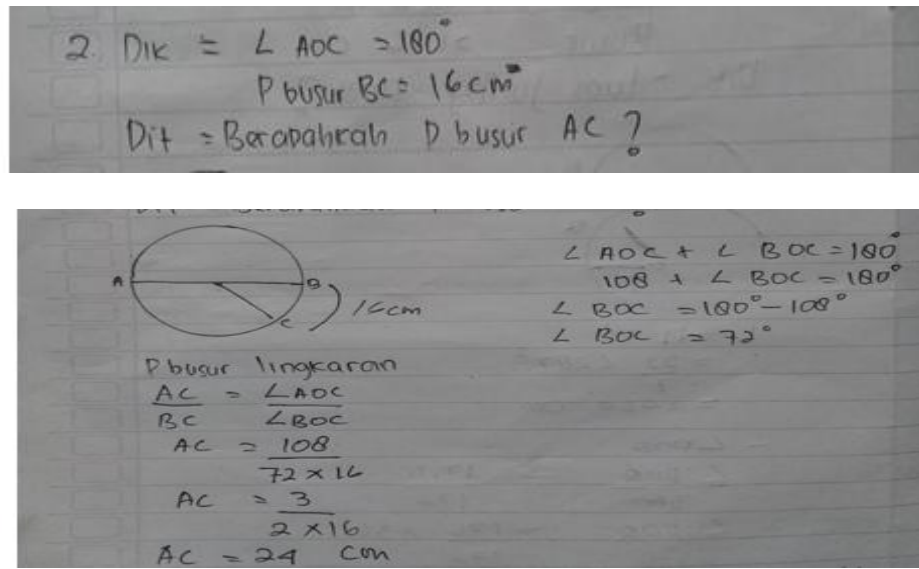 2. Dik = ∠ AOC = 180°
P busur BC = 16 cm
Dit = Berapahkah P busur AC ?
A
B
C
16cm
∠ AOC + ∠ BOC = 180°
108 + ∠ BOC = 180°
∠ BOC = 180° - 108°
∠ BOC = 72°
P busur lingkaran
AC = ∠AOC
BC ∠BOC
AC = 108
72 × 16
AC = 3
2 × 16
AC = 24 cm